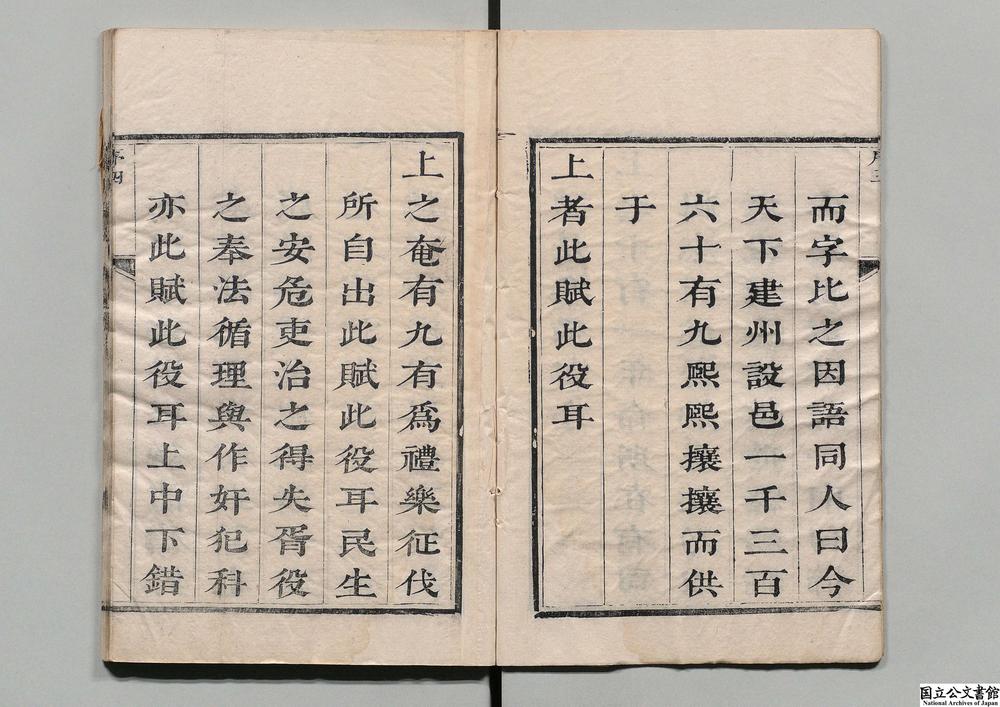 而字比之因語同人曰今
天下建州設邑一千三百
六十有九熙熙攘攘而供
于
上者此賦此役耳
上之奄有九有為禮樂征伐
所自出此賦此役耳民生
之安危吏治之得失胥役
之奉法循理與作奸犯科
亦此賦此役耳上中下錯
国立公文書館
National Archives of Japan